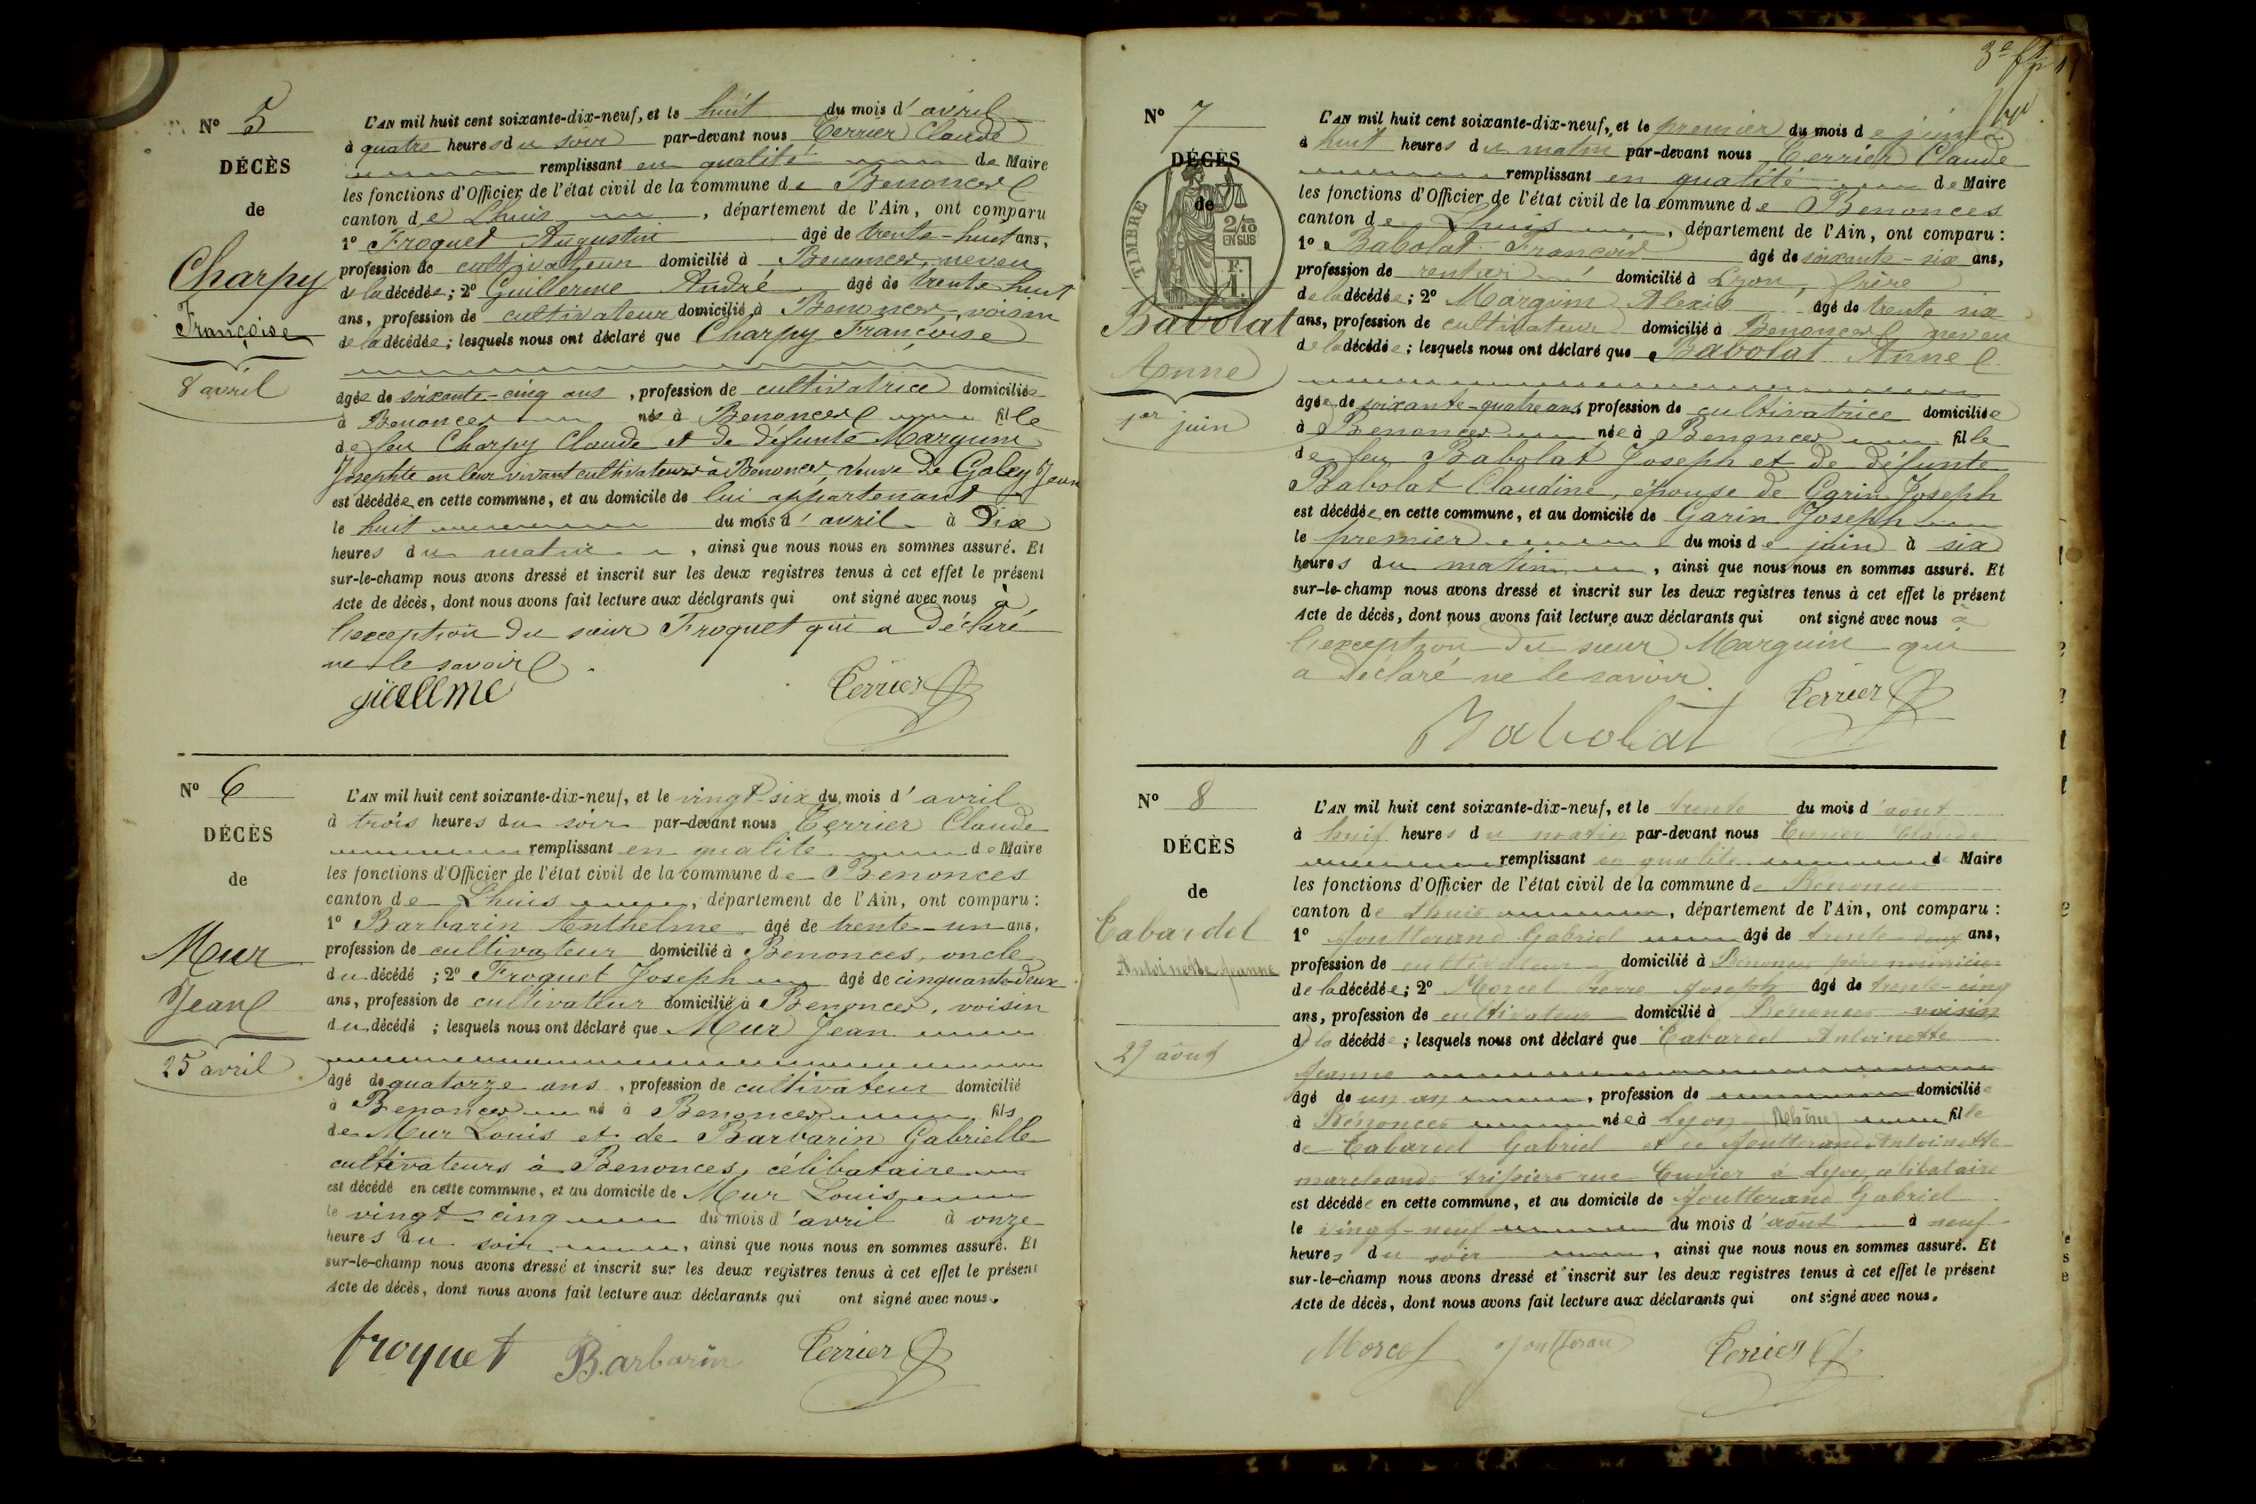 N° 5
DÉCÈS
de
Charpy
Françoise
8 avril
L'AN mil huit cent soixante-dix-neuf, et le huit du mois d'avril
à quatre heures du soir par-devant nous Terrier Claude
remplissant en qualité de Maire
les fonctions d'Officier de l'état civil de la commune de Benonces
canton de Lhuis, département de l'Ain, ont comparu
1° Froquet Augustin âgé de trente-huit ans,
profession de cultivateur domicilié à Benonces, neveu
de la décédée; 2° Guillerme André âgé de trente huit
ans, profession de cultivateur domicilié à Benonces, voisin
de la décédée; lesquels nous ont déclaré que Charpy Françoise
âgée de soixante-cinq ans, profession de cultivatrice domiciliée
à Benonces née à Benonces fille
de feu Charpy Claude et de défunte Marguin
Josephte en leur vivant cultivateurs à Benonces, veuve de Goley Jean
est décédée en cette commune, et au domicile de lui appartenant
le huit du mois d'avril à Dix
heures du matin, ainsi que nous nous en sommes assuré. Et
sur-le-champ nous avons dressé et inscrit sur les deux registres tenus à cet effet le présent
Acte de décès, dont nous avons fait lecture aux déclarants qui ont signé avec nous à
l'exception du sieur Froquet qui a déclaré
ne le savoir.
Terrier
N° 6
DÉCÈS
de
Mur
Jean
25 avril
L'AN mil huit cent soixante-dix-neuf, et le vingt-six du mois d'avril
à trois heures du soir par-devant nous Terrier Claude
remplissant en qualité de Maire
les fonctions d'Officier de l'état civil de la commune de Benonces
canton de Lhuis, département de l'Ain, ont comparu :
1° Barbarin Anthelme âgé de trente-un ans,
profession de cultivateur domicilié à Benonces, oncle
du décédé ; 2° Froquet Joseph âgé de cinquante deux
ans, profession de cultivateur domicilié à Benonces, voisin
du décédé ; lesquels nous ont déclaré que Mur Jean
âgé de quatorze ans, profession de cultivateur domicilié
à Benonces né à Benonces fils
de Mur Louis et de Barbarin Gabrielle
cultivateurs à Benonces, célibataire
est décédé en cette commune, et au domicile de Mur Louis
le vingt-cinq du mois d'avril à onze
heures du soir, ainsi que nous nous en sommes assuré. Et
sur-le-champ nous avons dressé et inscrit sur les deux registres tenus à cet effet le présent
Acte de décès, dont nous avons fait lecture aux déclarants qui ont signé avec nous.
froquet Barbarin Terrier
N° 7
DÉCÈS
de
TIMBRE
2/10
EN SUS
Babolat
Anne
1er juin
L'AN mil huit cent soixante-dix-neuf, et le premier du mois de juin
à huit heures du matin par-devant nous Terrier Claude
remplissant en qualité de Maire
les fonctions d'Officier de l'état civil de la commune de Benonces
canton de Lhuis, département de l'Ain, ont comparu :
1° Babolat François âgé de soixante-six ans,
profession de rentier domicilié à Lyon, frère
de la décédée; 2° Marguin Alexis âgé de trente six
ans, profession de cultivateur domicilié à Benonces neveu
de la décédée; lesquels nous ont déclaré que Babolat Anne
âgée de soixante-quatre ans, profession de cultivatrice domiciliée
à Benonces née à Benonces fille
de feu Babolat Joseph et de défunte
Babolat Claudine, épouse de Garin Joseph
est décédée en cette commune, et au domicile de Garin Joseph
le premier du mois de juin à six
heures du matin, ainsi que nous nous en sommes assuré. Et
sur-le-champ nous avons dressé et inscrit sur les deux registres tenus à cet effet le présent
Acte de décès, dont nous avons fait lecture aux déclarants qui ont signé avec nous à
l'exception du sieur Marguin qui
a déclaré ne le savoir.
Babolat Terrier
N° 8
DÉCÈS
de
Cabardel
Antoinette Jeanne
29 août
L'AN mil huit cent soixante-dix-neuf, et le trente du mois d'aout
à huit heures du matin par-devant nous Terrier Claude
remplissant en qualité de Maire
les fonctions d'Officier de l'état civil de la commune de Benonces
canton de Lhuis, département de l'Ain, ont comparu :
1° Joutterand Gabriel âgé de trente-deux ans,
profession de cultivateur domicilié à Benonces père nourricier
de la décédée; 2° Morcel Pierre Joseph âgé de trente-cinq
ans, profession de cultivateur domicilié à Benonces voisin
de la décédée; lesquels nous ont déclaré que Cabardel Antoinette
Jeanne
âgé de un an, profession de domiciliée
à Bénonces née à Lyon (Rhône) fille
de Cabardel Gabriel et de Joutterand Antoinette
marchands tripiers rue Cuvier à Lyon, célibataire
est décédée en cette commune, et au domicile de Joutterand Gabriel
le vingt-neuf du mois d'août à neuf
heures du soir, ainsi que nous nous en sommes assuré. Et
sur-le-champ nous avons dressé et inscrit sur les deux registres tenus à cet effet le présent
Acte de décès, dont nous avons fait lecture aux déclarants qui ont signé avec nous.
Morcel Joutterand Terrier